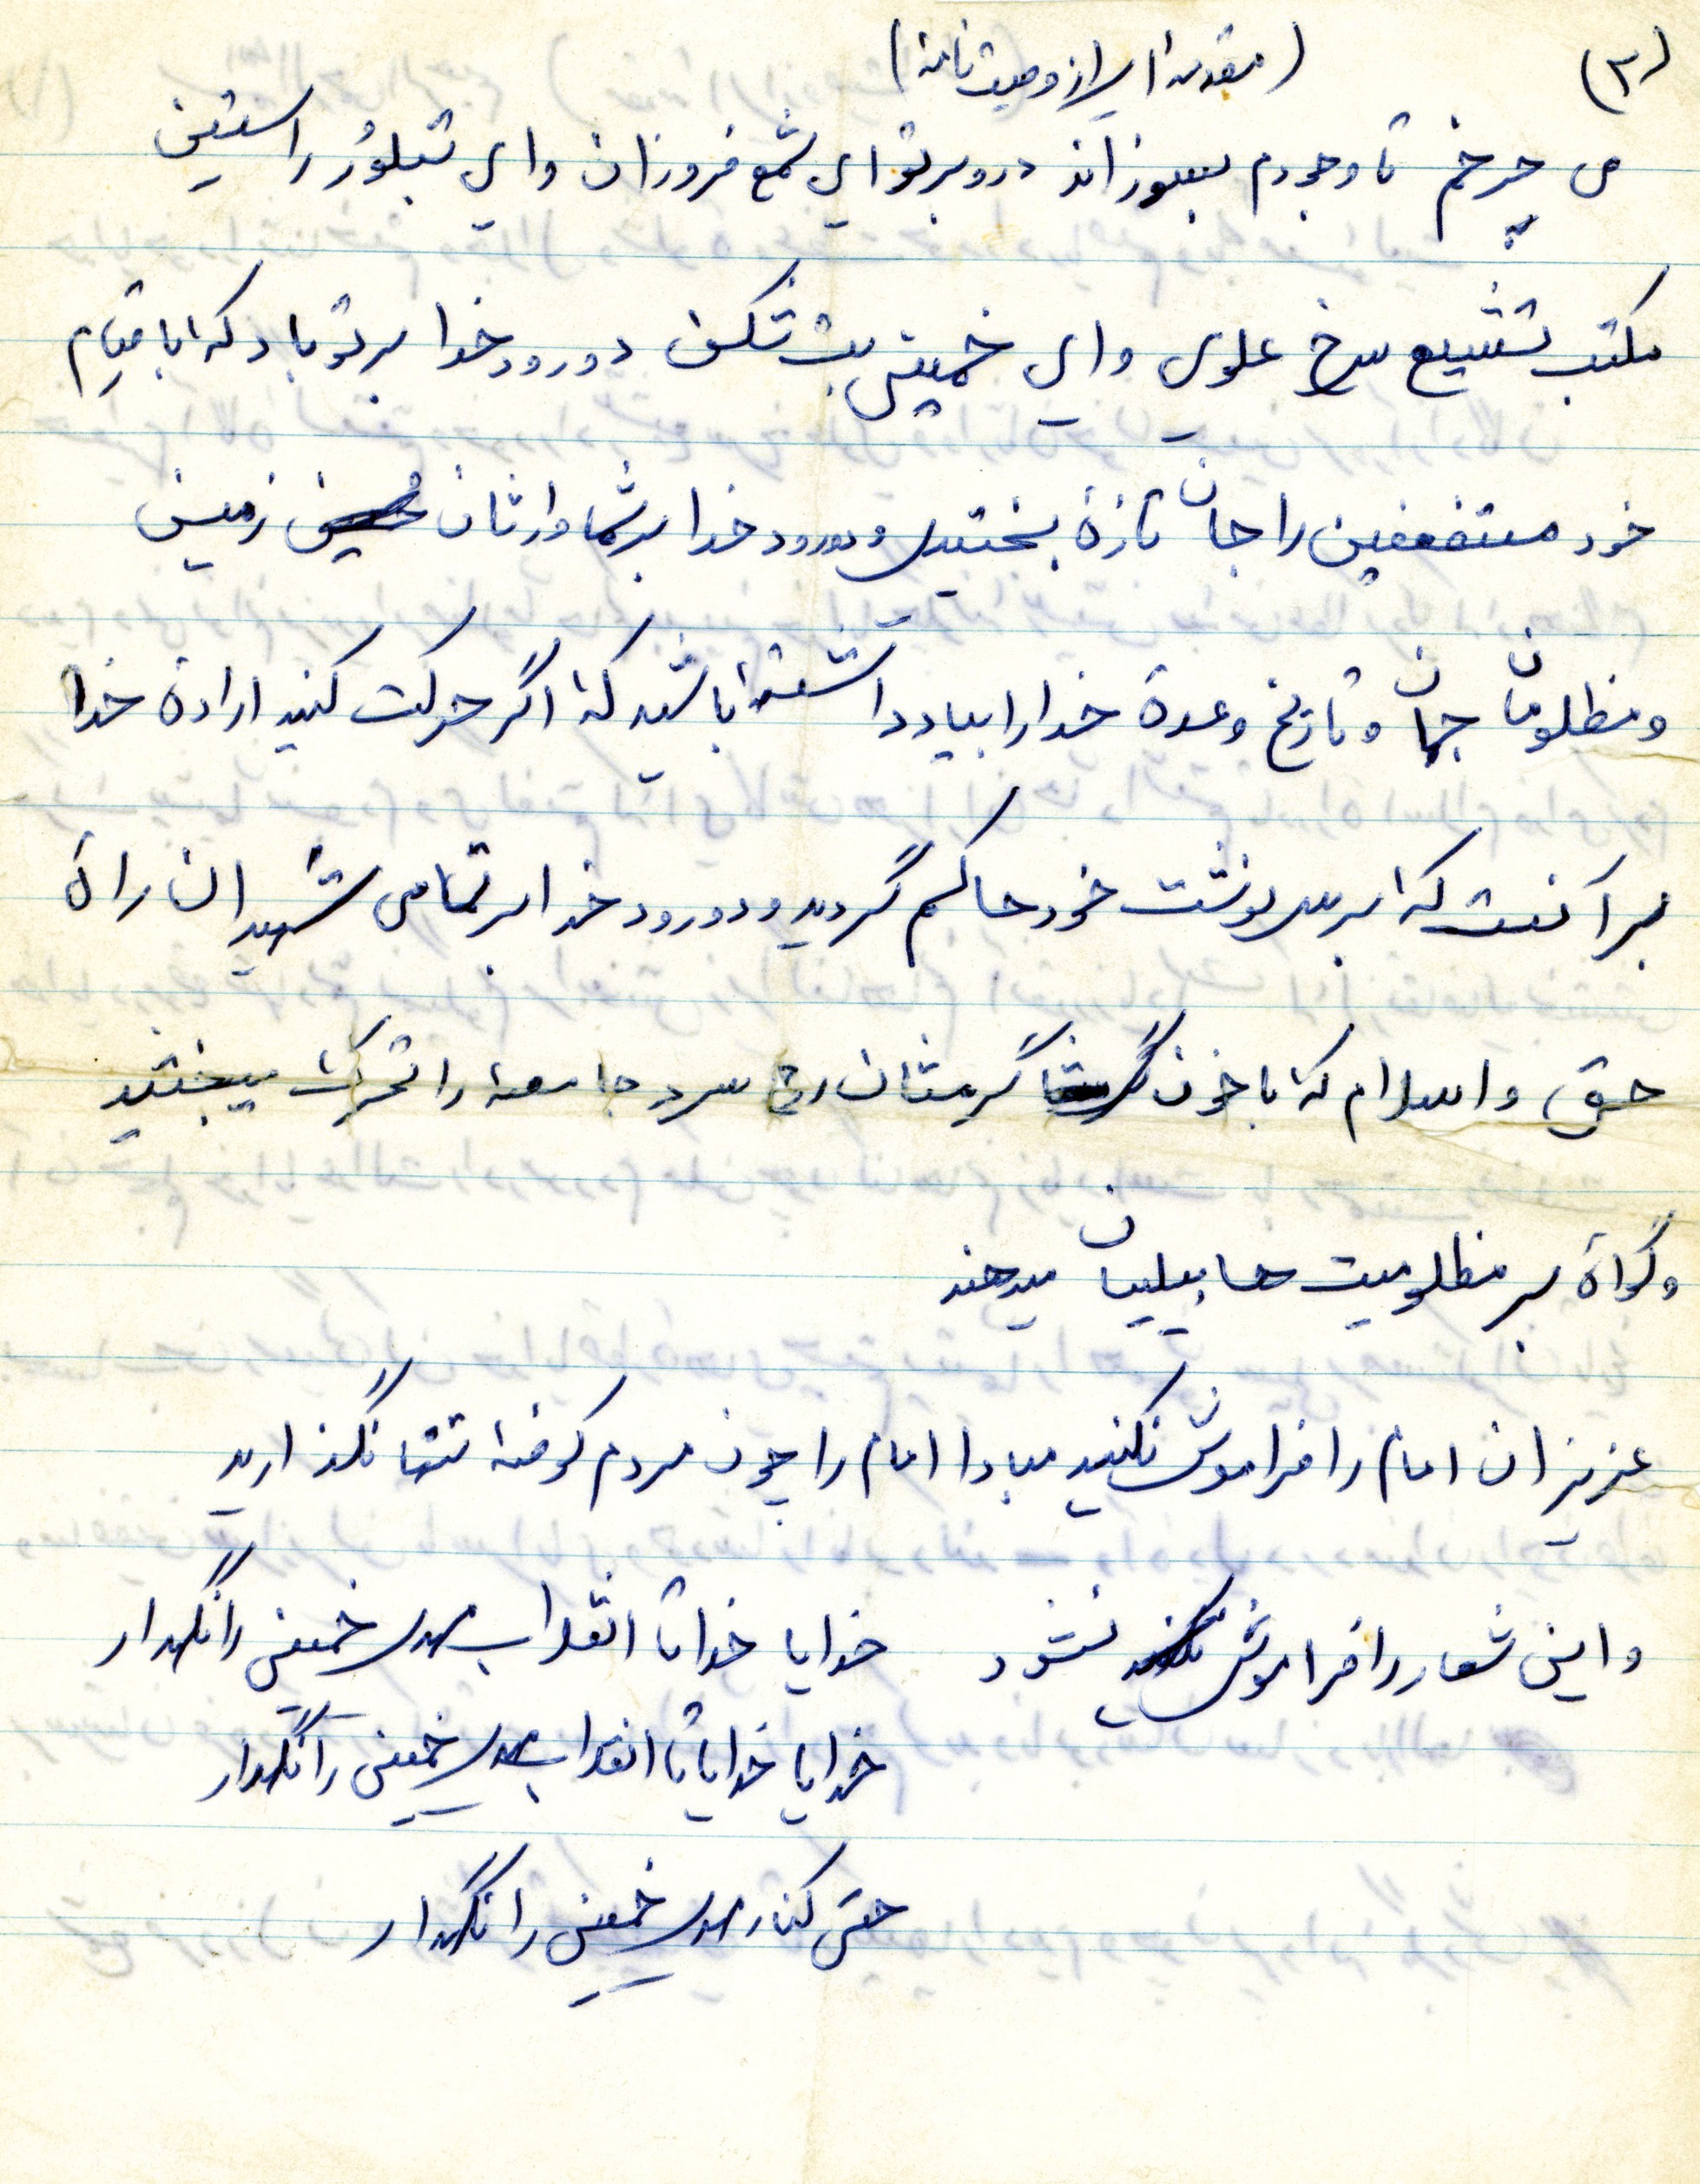 (۲) (مقدمه ای از وصیت نامه)
می چرخم تا وجودم بسوزاند درود بر تو ای شمع فروزان و ای تبلور راستین
مکتب تشیع سرخ علوی و ای خمینی بت شکن دورود خدا بر تو باد که با قیام
خود مستضعفین را جان تازه بخشیدی و دورود خدا بر شما وارثان زمین
و مظلومان جهان و تاریخ وعده خدا را بیاد داشته باشید که اگر حرکت کنید اراده خدا
بر آنست که بر سرنوشت خود حاکم گردید و دورود خدا بر تمامی شهیدان راه
حق و اسلام که با خون گرمشان رگ سرد جامعه را تحرک میبخشید
و گواه بر مظلومیت هابیلیان میدهند
عزیزان امام را فراموش نکنید مبادا امام را چون مردم کوفه تنها نگذارید
و این شعار را فراموش نشود خدایا خدا تا انقلاب مهدی خمینی را نگهدار
خدایا خدایا تا انقلاب مهدی خمینی را نگهدار
حتی کنار مهدی خمینی را نگهدار